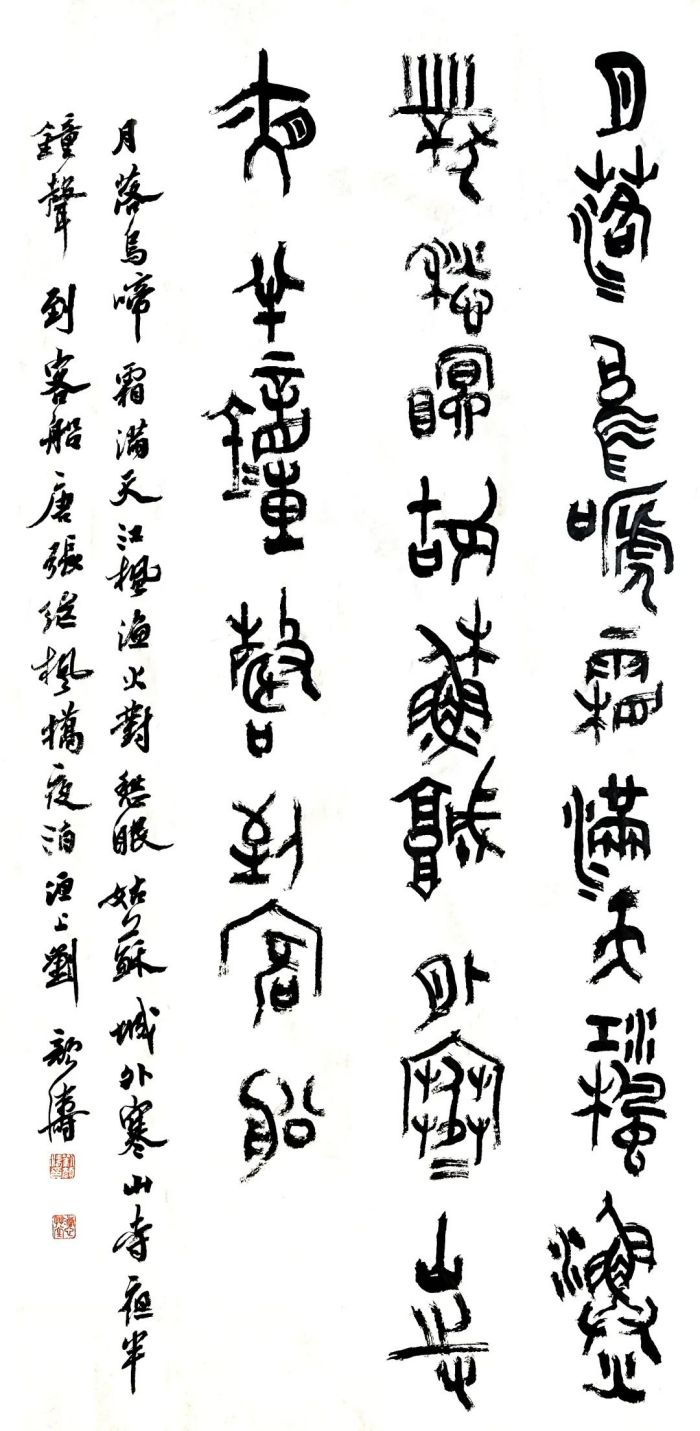 月落烏嗁霜滿天江楓漁火
對愁眠姑蘇城外寒山寺
夜半鐘聲到客船
月落烏啼霜滿天江楓漁火對愁眠姑蘇城外寒山寺夜半
鐘聲到客船唐張繼楓橋夜泊洹上劉顏濤